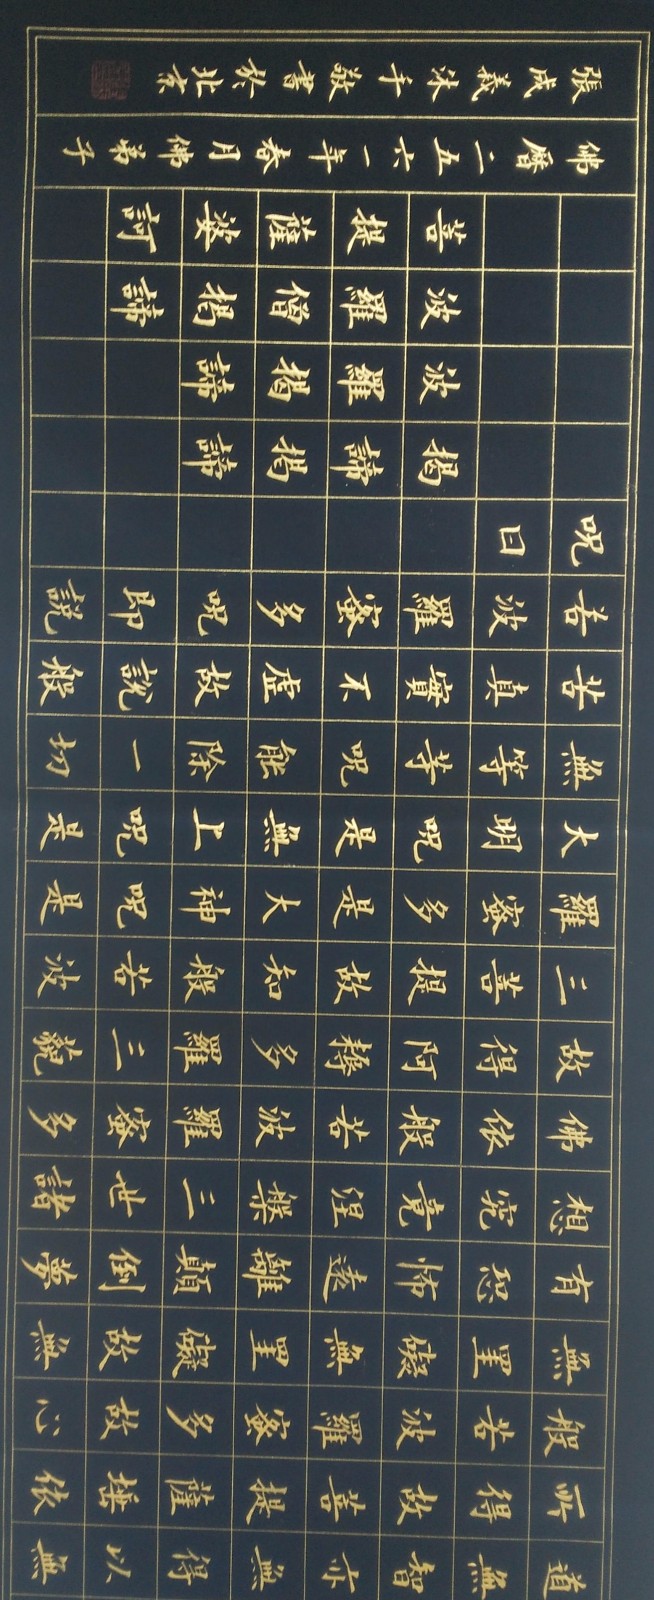 道無智亦無得以無
所得故菩提薩埵依
般若波羅蜜多故心
無罣礙無罣礙故無
有恐怖遠離顛倒夢
想究竟涅槃三世諸
佛依般若波羅蜜多
故得阿耨多羅三藐
三菩提故知般若波
羅蜜多是大神呪是
大明呪是無上呪是
無等等呪能除一切
苦真實不虛故說般
若波羅蜜多呪即說
呪曰
揭諦揭諦
波羅揭諦
波羅僧揭諦
菩提薩婆訶
佛曆二五六一年春月佛弟子
張成義沐手敬書於北京